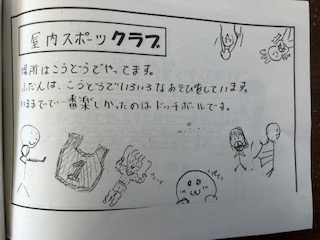 屋内スポーツクラブ
場所はこうどうでやってます。
ふだんは、こうどうでいろいろなあそびをしています。
いままでで一番楽しかったのはドッチボールです。